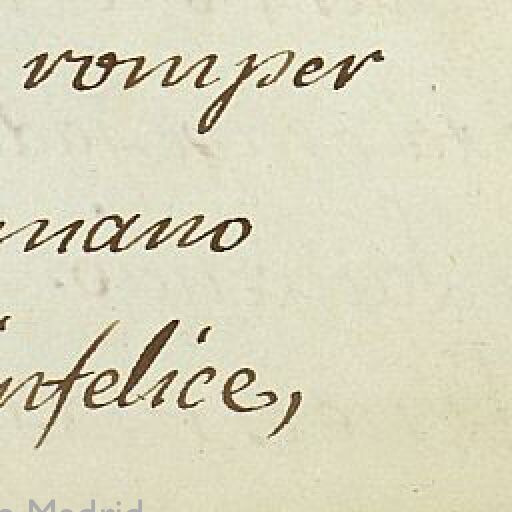 romper
mano
infelice,
Madrid